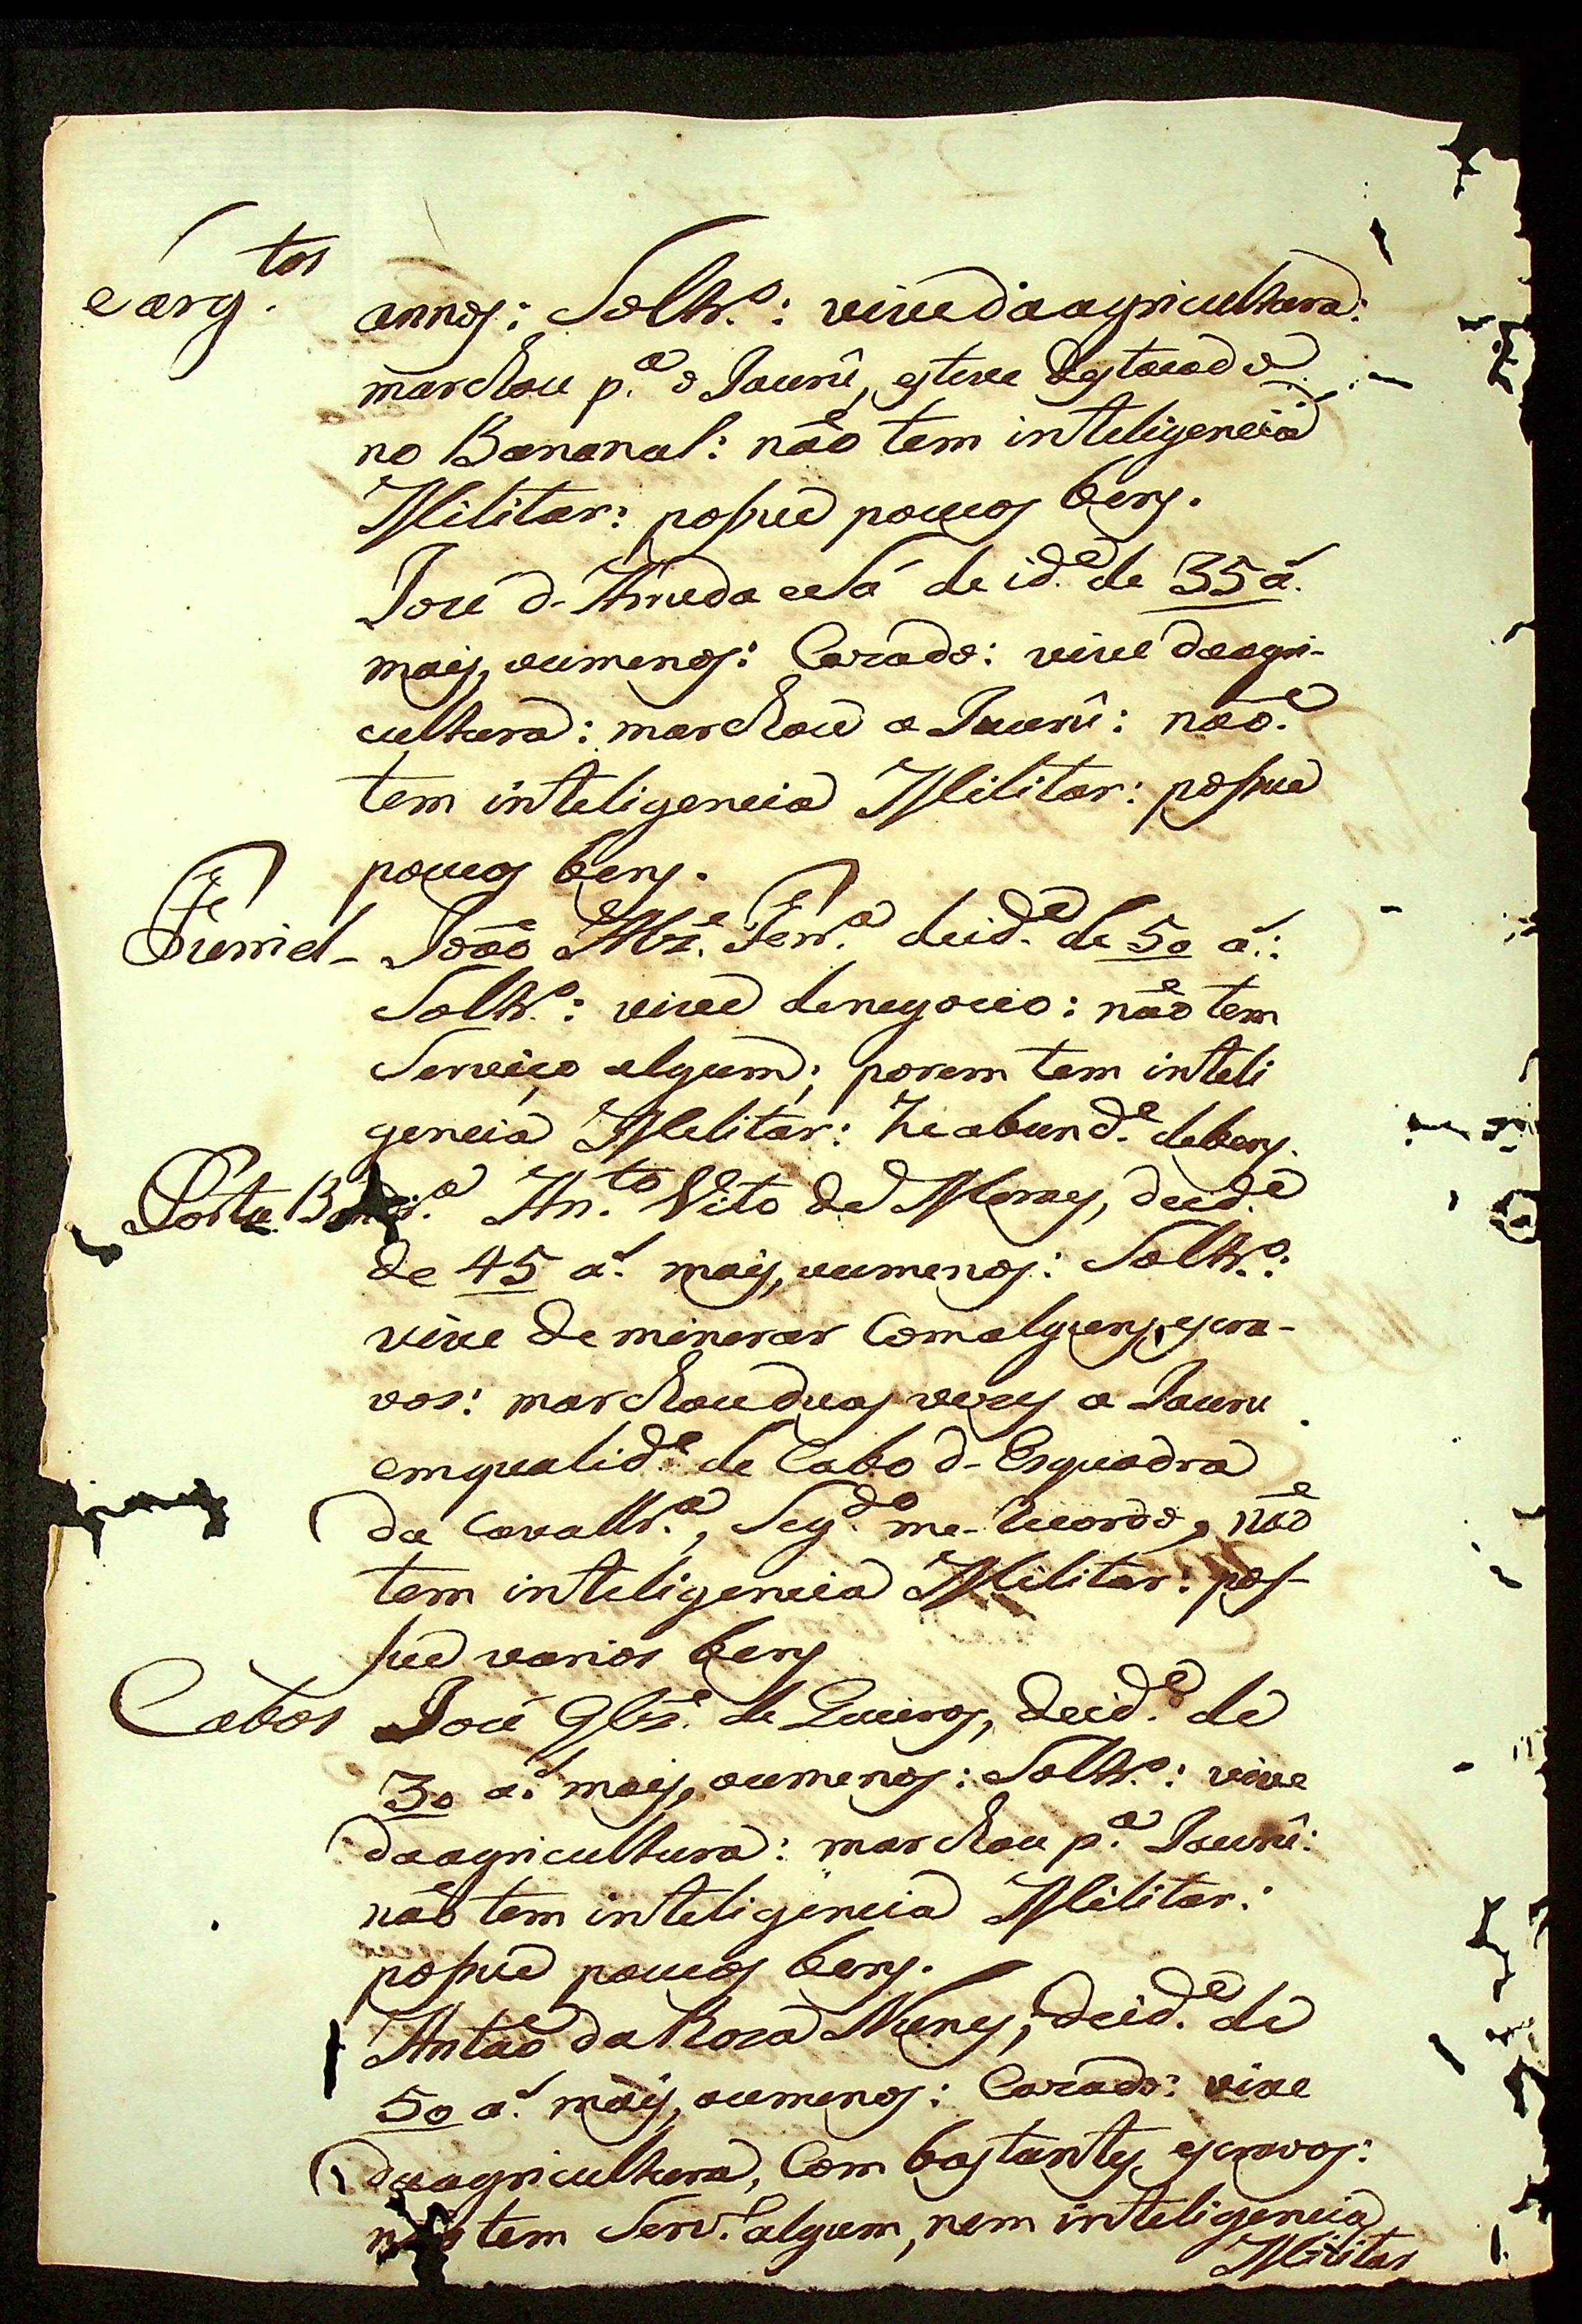 Sarg.tos annos: Soltr.o: vive da agricultura:
marchou p.a o Jaurú, esteve destacado
no Bananal: não tem inteligencia
Militar: possue poucos bens.
José d'Arruda e Sá de id.e de 35 a.
mais, ou menos: Cazado: vive da agri-
cultura: marchou a Jaurú: não
tem inteligencia Militar: possue
poucos bens.
Furriel - João Miz. Ferr.a de id.e de 50 a.:
Soltr.o: vive de negocio: não tem
Serviço algum; porem tem inteli
gencia Melitar: he abund.e de bens.
Porta Band.a An.to Vito de Moraes, de id.e
de 45 a. mais, ou menos: Soltr.o:
vive de minerar Com alguns, escra-
vos: marchou duas vezes a Jauru
em qualid.e de Cabo d'Esquadra
da Cavallr.a, Seg.do me-recordo, não
tem inteligencia Militar: pos-
sue varios bens
Cabos José Glz. de Queiros, de id.e de
30 a. mais, ou menos: Soltr.o: vive
da agricultura: marchou p.a Jaurú:
não tem inteligencia Militar:
possue poucos bens.
Antão da Roza Nunes, de id.e de
50 a. mais, ou menos: Cazado: vive
da agricultura, Com bastantes, escravos:
não tem Serv.o algum, nem inteligencia
Militar